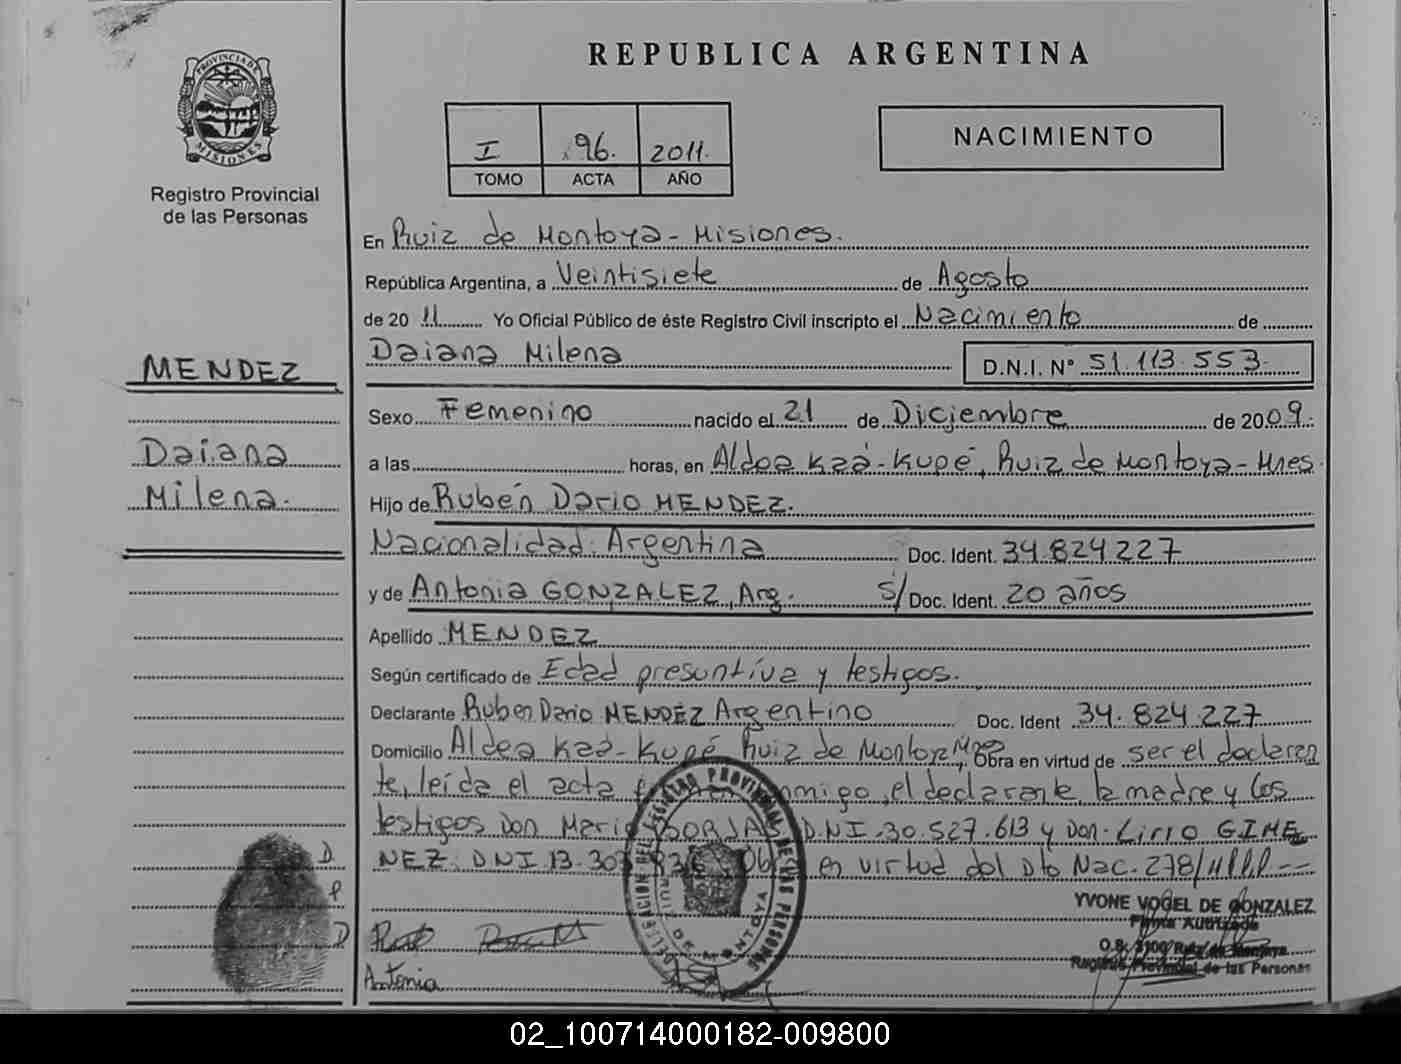 PROVINCIA DE
MISIONES
Registro Provincial
de las Personas
MENDEZ
Daiana
Milena.
D.
P
D
REPUBLICA ARGENTINA
I 96. 2011.
TOMO ACTA AÑO
NACIMIENTO
En Ruiz de Montoya - Misiones.
República Argentina, a Veintisiete de Agosto
de 20 11 Yo Oficial Público de éste Registro Civil inscripto el Nacimiento de
Daiana Milena D.N.I. Nº 51.113.553
Sexo Femenino nacido el 21 de Diciembre de 2009.
a las horas, en Aldea Kaá-Kupé, Ruiz de Montoya - Mnes.
Hijo de Rubén Dario MENDEZ.
Nacionalidad: Argentina Doc. Ident. 34.824.227
y de Antonia GONZALEZ, Arg. S/ Doc. Ident. 20 años
Apellido MENDEZ
Según certificado de Edad presuntiva y testigos.
Declarante Ruben Dario MENDEZ Argentino Doc. Ident 34.824.227
Domicilio Aldea Kaá-Kupé Ruiz de Montoya, Mnes Obra en virtud de ser el declaran
te, leída el acta conmigo, el declarante, la madre y los
testigos Don Mario BORJAS D.N.I. 30.527.613 y Don Lirio GIME
NEZ: DNI 13.307 en virtud del Dto Nac. 278/11
YVONE VOGEL DE GONZALEZ
Firma Autorizada
Ruiz de Montoya
Registro Provincial de las Personas
Antonia
DELEGACION DEL REGISTRO PROVINCIAL DE LAS PERSONAS
RUIZ DE MONTOYA
02_100714000182-009800